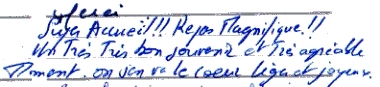 Merci
Super Accueil!!! Repas Magnifique!!
Un Très Très bon souvenir et très agréable
Moment, on s'en va le coeur léger et joyeux.